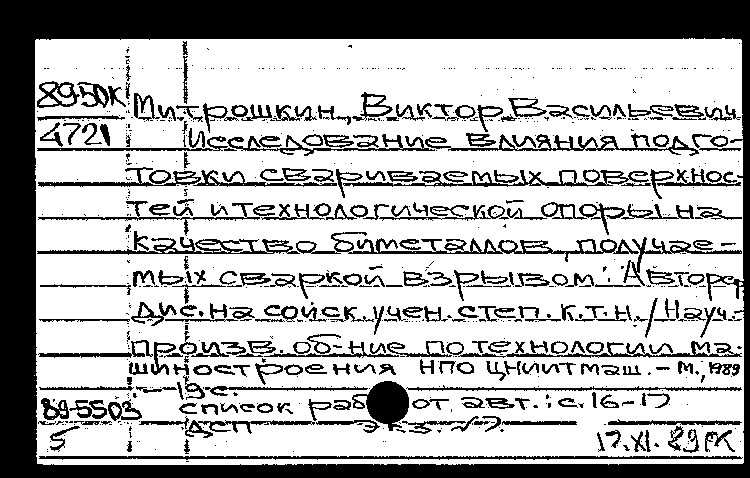 89-5ДК Митрошкин, Виктор Васильевич
4721 Исследование влияния подго-
товки свариваемых поверхнос-
тей и технологической опоры на
качество биметаллов, получае-
мых сваркой взрывом: Авторер
дис. на соиск. учен. степ. к.т.н. / Науч.-
произв. об-ние по технологии ма-
шиностроения НПО ЦНИИТмаш. - М., 1989
. - 19 с.
89-5503 список работ авт.: с. 16-17
5 ДСП Экз. №7. 17.XI.89